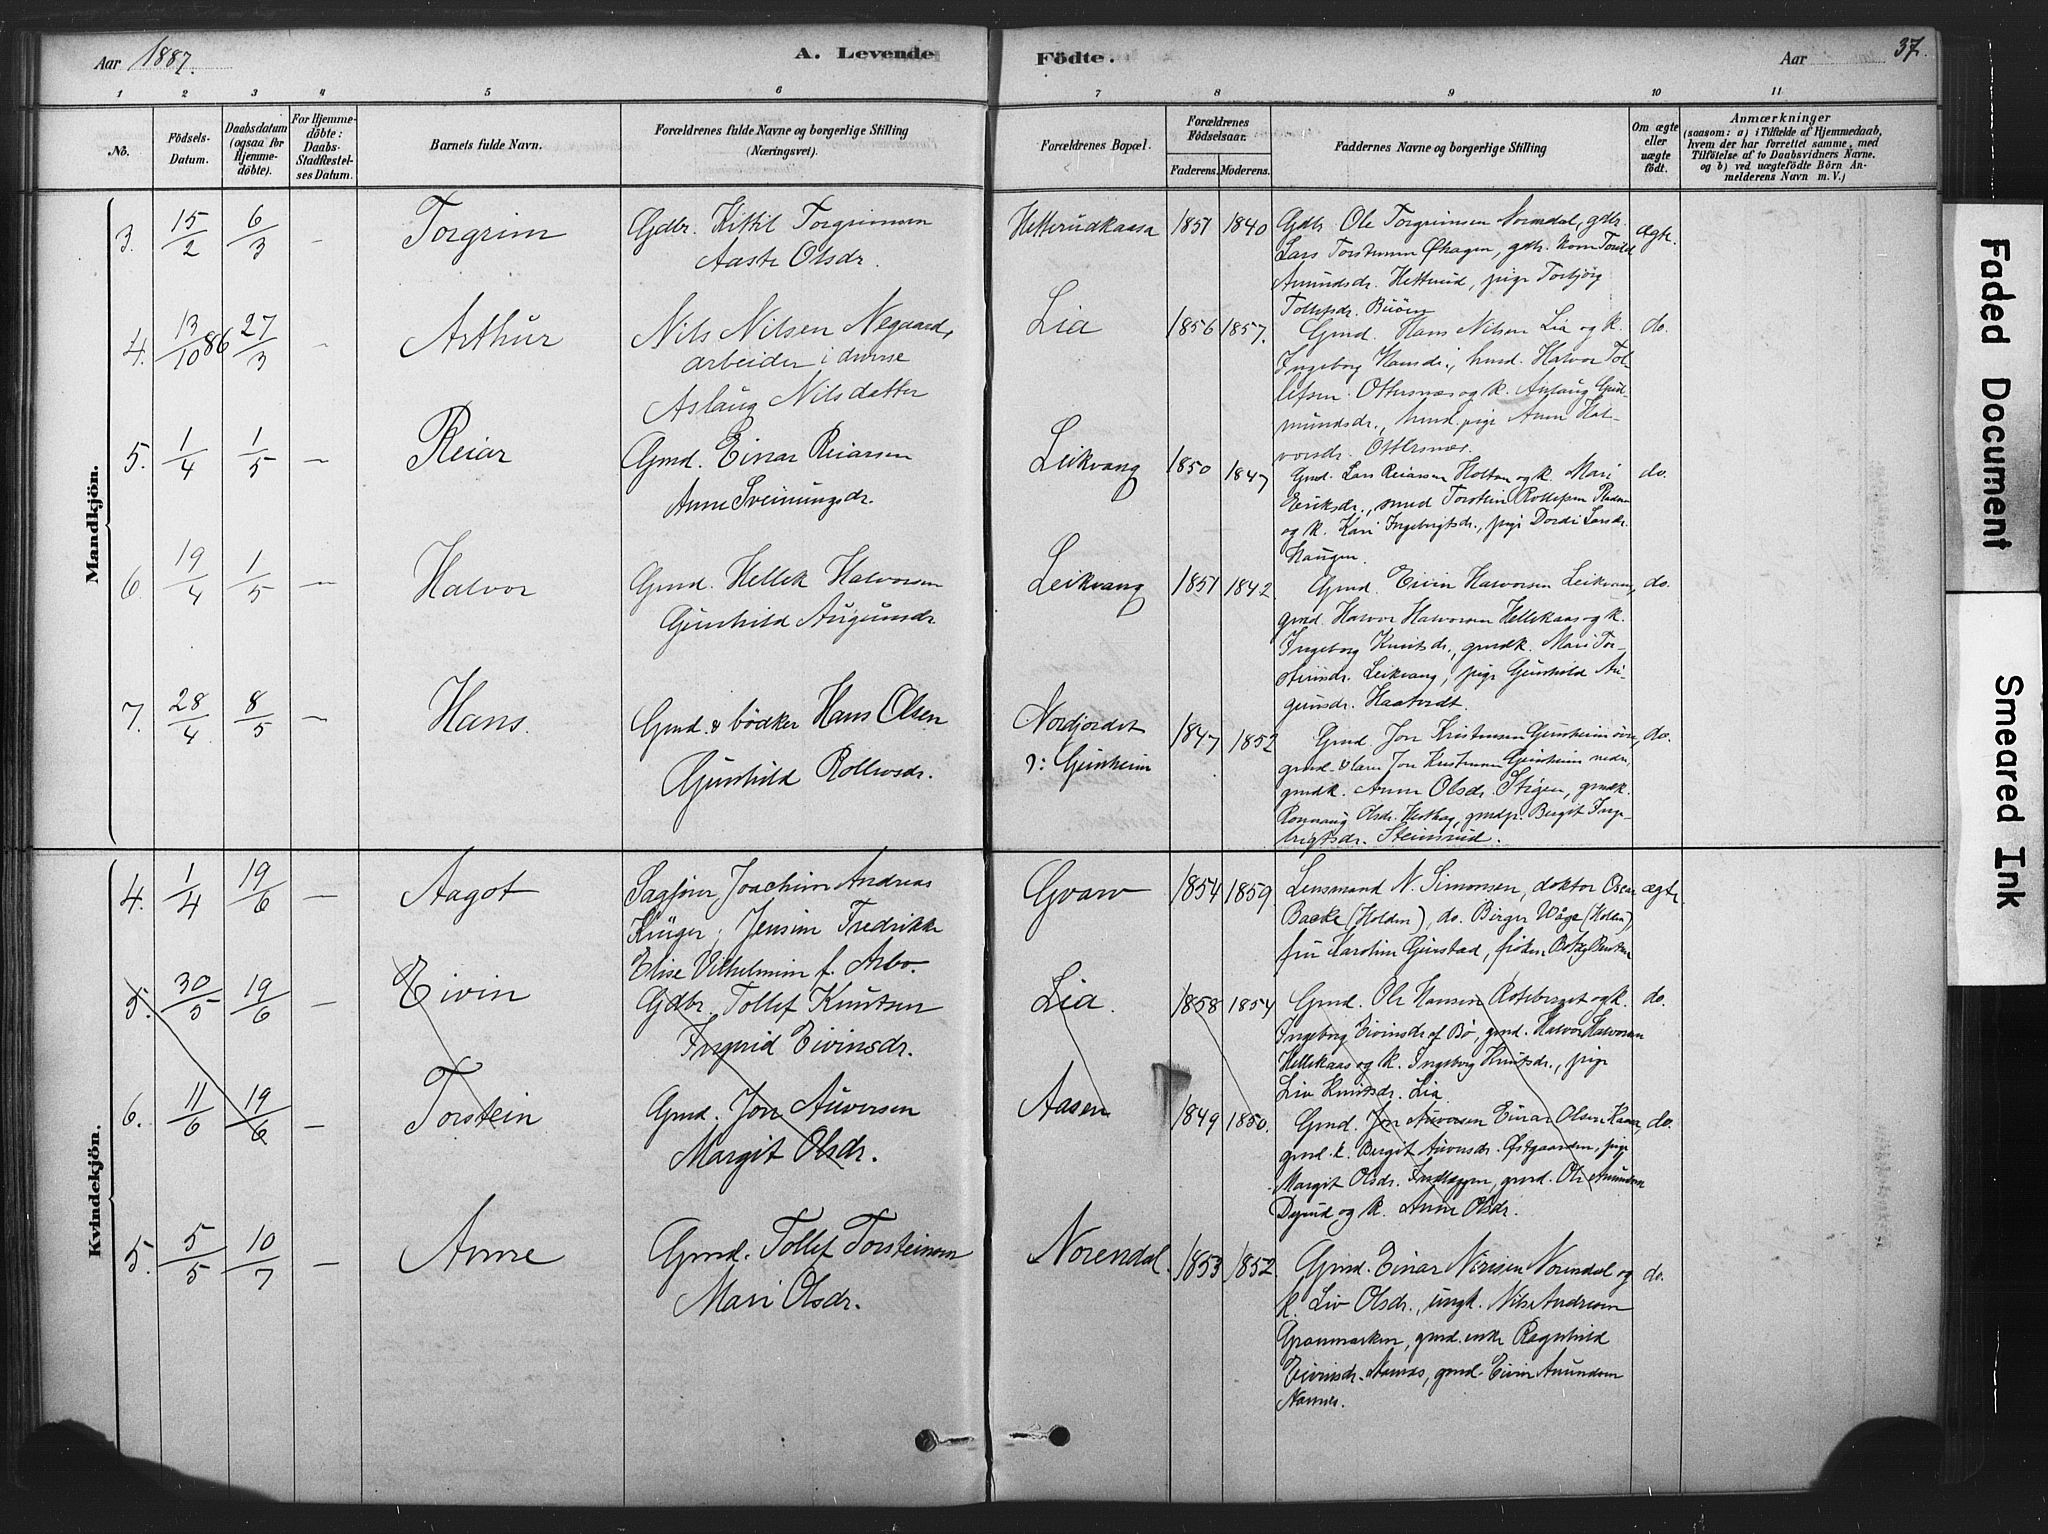 Aar 1887.
A. Levende
Födte.
Aar
37.
1 2 3 4 5 6 7 8 9 10 11
No.
Födsels-
Datum.
Daabsdatum
(ogsaa for
Hjemme-
döbte).
For Hjemme-
döbte:
Daabs-
Stadfæstel-
ses Datum.
Barnets fulde Navn.
Forældrenes fulde Navne og borgerlige Stilling
(Næringsvei).
Forældrenes Bopæl.
Forældrenes
Födselsaar.
Faderens. Moderens.
Faddernes Navne og borgerlige Stilling
Om ægte
eller
uægte
födt.
Anmærkninger
(saasom: a) i Tilfælde af Hjemmedaab,
hvem der har forrettet samme, med
Tilföielse af to Daabsvidners Navne.
og b) ved uægtefödte Börn An-
melderens Navn m. V.)
Mandkjön.
3. 15/2 6/3 - Torgrim
Gdbr. Kittil Torgrimsen
Aaste Olsdr.
Hetterudkaasa 1851 1840
Gdbr. Ole Torgrimsen Norendal, gdbr.
Lars Torstensen Økagen, gdbr. kone Tordid
Amundsdr. Hetterud, pige Torbjörg
Tollefsdr. Buöen
ægte.
4. 13/10 86 27/3 - Arthur
Nils Nilsen Negaard,
arbeider i diverse
Aslaug Nilsdatter
Lia 1856 1857.
Gmd. Hans Nilsen Lia og k.
Ingeborg Hansdr., husd. Halvor Tol-
lefsen Ottersnæs og k. Anlaug Gud-
mundsdr., husd. pige Anne Hal-
vorsdr. Ottersnæs.
do.
5. 1/4 1/5 - Reiar
Gmd. Einar Reiarsen
Anne Sveinungsdr.
Leikvang 1850 1847
Gmd. Lars Reiarsen Holtan og k. Mari
Eriksdr., smed Torstein Rollefsen
og k. Kari Ingebrigtsdr., pige Dordi Larsdr.
Haugen.
do.
6. 19/4 1/5 - Halvor
Gmd. Hellek Halvorsen
Gunhild Augunsdr.
Leikvang 1851 1842
Gmd. Eivin Halvorsen Leikvang,
gmd. Halvor Halvorsen Hellekaas og k.
Ingeborg Knutsdr., gmdk. Mari Tor-
steinsdr. Leikvang, pige Gunhild Au-
gunsdr. Haatvedt.
do.
7. 28/4 8/5 - Hans.
Gmd. & bödker Hans Olsen
Gunhild Rollevsdr.
Nordjordet
ɔ: Gunheim
1847 1852
Gmd. Jon Kristensen Gunheim övre,
gmd. & lærer Jon Kristensen Gunheim nedre,
gmdk. Anne Olsdr. Stigen, gmdk.
Rannaug Olsdr. Herthag, gmdp. Bergit Inge-
brigtsdr. Steinsrud.
do.
Kvindekjön.
4. 1/4 19/6 - Aagot
Sagfører Joachim Andreas
Krüger, Jensine Fredrikke
Elise Vilhelmine f. Arbo.
Gvarv 1854 1859.
Lensmand N. Simonsen, doktor Oscar
Backe (Holden), do. Birger Wåge (Holden),
fru Karoline Gunstad, frøken Botzy Bentsen
ægte
5. 30/5 19/6 - Eivin
Gdbr. Tollef Knutsen
Ingerid Eivinsdr.
Lia. 1858 1854
Gmd. Ole Hansen Roteberget og k.
Ingeborg Eivinsdr. af Bø, gmd. Halvor Halvorsen
Hellekaas og k. Ingeborg Knutsdr., pige
Liv Knutsdr. Lia
do.
6. 11/6 19/6 - Torstein
Gmd. Jon Auversen
Margit Olsdr.
Aasen 1849 1850.
Gmd. Jon Auversen Einar Olsen Kaasa,
gmd. k. Bergit Auversdr. Østgaarden, pige
Margit Olsdr. Indlæggen, gmd. Ole Amundsen
Dyrud og k. Anne Olsdr.
do.
5. 5/5 10/7 - Anne
Gmd. Tollef Torsteinsen
Mari Olsdr.
Norendal. 1853 1852
Gmd. Einar Nirisen Norendal og
k. Liv Olsdr., ungk. Nils Andresen
Grønmarken, gmd. enke Ragnhild
Eivinsdr. Namnæs, gmd. Eivin Amundsen
Namnes.
do.
Faded Document
Smeared Ink